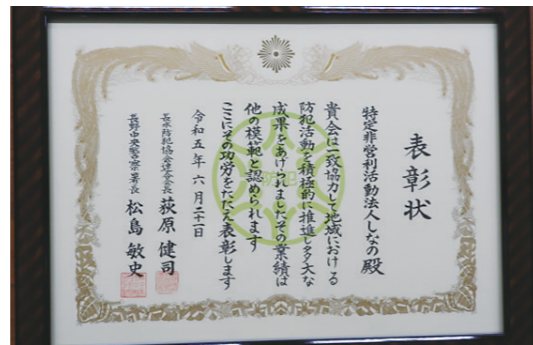 表彰状
特定非営利活動法人しなの殿
貴会は一致協力して地域における
防犯活動を積極的に推進し多大な
成果をあげられましたその業績は
他の模範と認められます
ここにその功労をたたえ表彰します
令和五年六月二十一日
長水防犯協会連合会長 荻原健司
長野中央警察署長 松島敏史
防犯